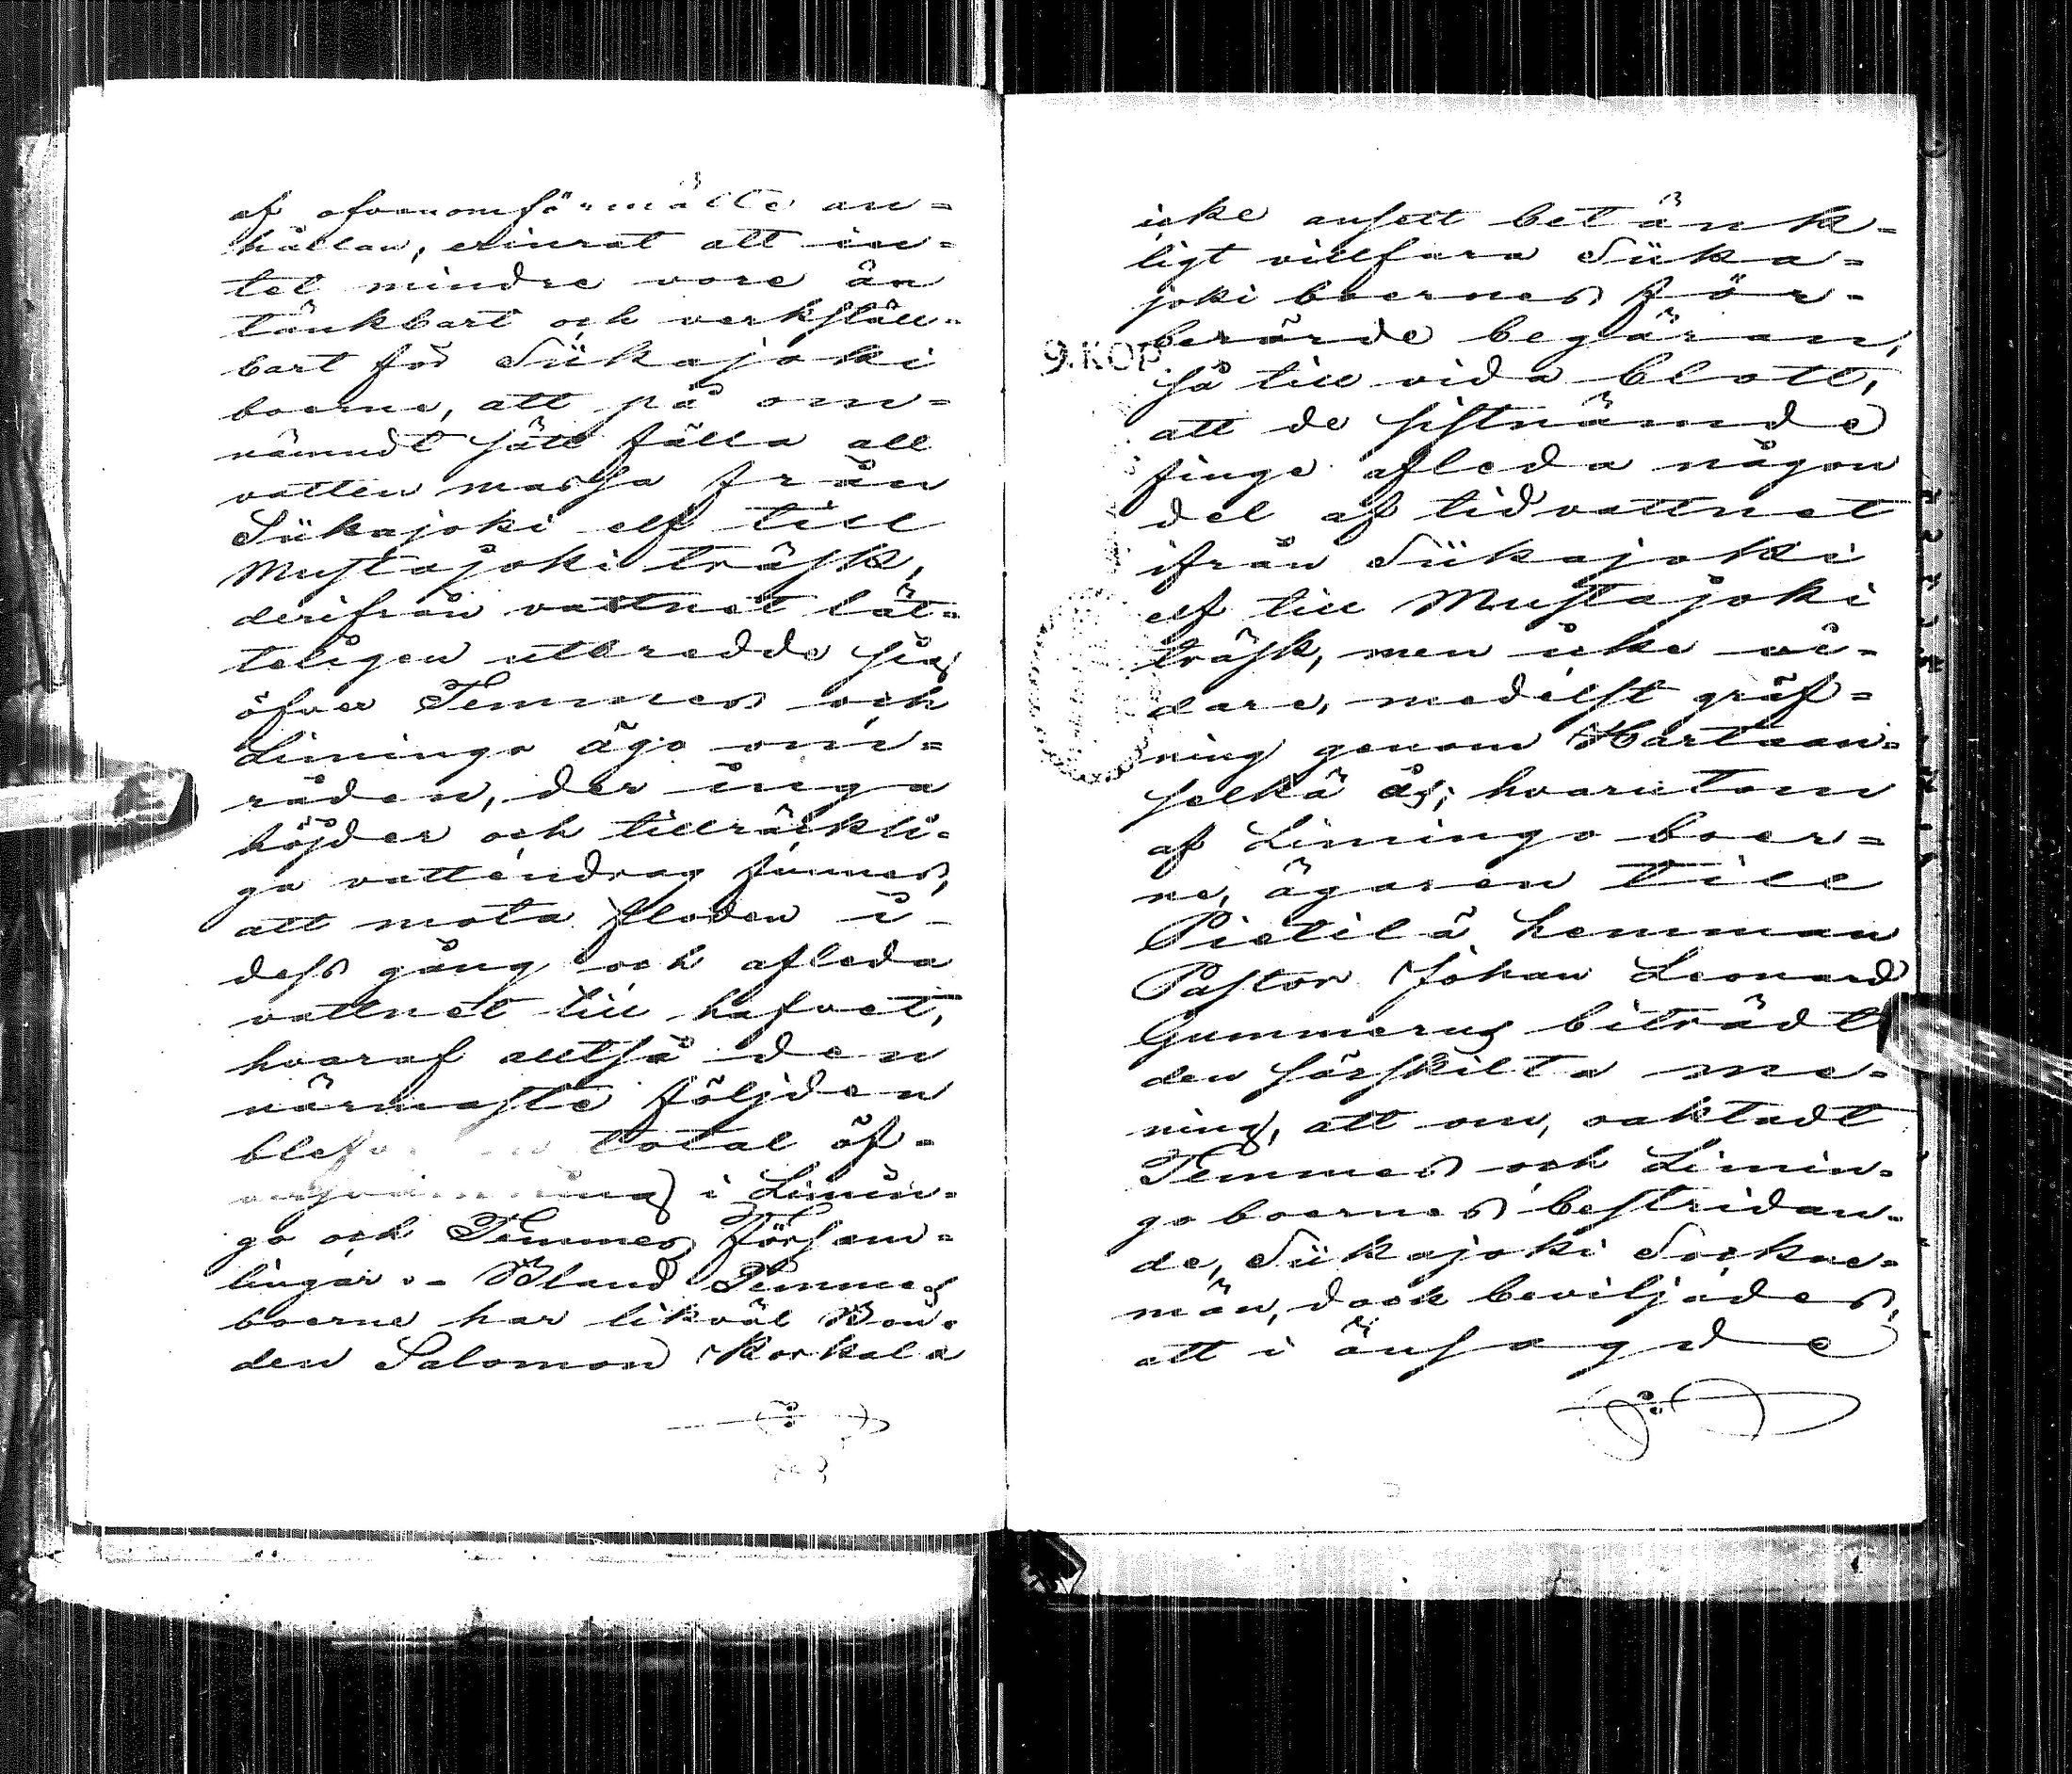 af ofvanomförmälte an=
hållan, erinrat att in=
tet mindre vore än
tänkbart och verkställ=
bart för Siikajoki
boerne, att på om=
nämndt sätt fälla all
vatten massa från
Siikajoki elf till
Mustajoki träsk,
derifrån vattnet lät=
teligen utbredde sig
öfver Temmes och
Limingo ägo om=
råden, der inga
höjder och tillräckli=
ga vattendrag funnes,
att mota floden i
dess gång och afleda
vattnet till hafvet,
hvaraf alltså den
närmaste följden
blefve total öf=
i Limin=
go och Temmes Försam=
lingar.- Bland Temmes
boerne har likväl Bon=
den Salomon Korkala
icke ansett betänk=
ligt villfara Siika=
joki boernes för=
berörde begäran,
9. KOP
så till vida blott,
att de sistnämnde
finge afleda någon
del af tidvattnet
ifrån Siikajoki
elf till Mustajoki
träsk, men icke vi=
dare, medelst gräf=
ning genom Hartaan=
selkä ås; hvarutom
af Limingo boer=
ne, ägaren till
Pietilä hemman
Pastor Johan Leonard
Gummerus biträdt
den särskilta me=
ning, att om, oaktadt
Temmes och Limin=
go boernes bestridan=
de, Siikajoki Sockne=
män, dock beviljades,
att i önsagde